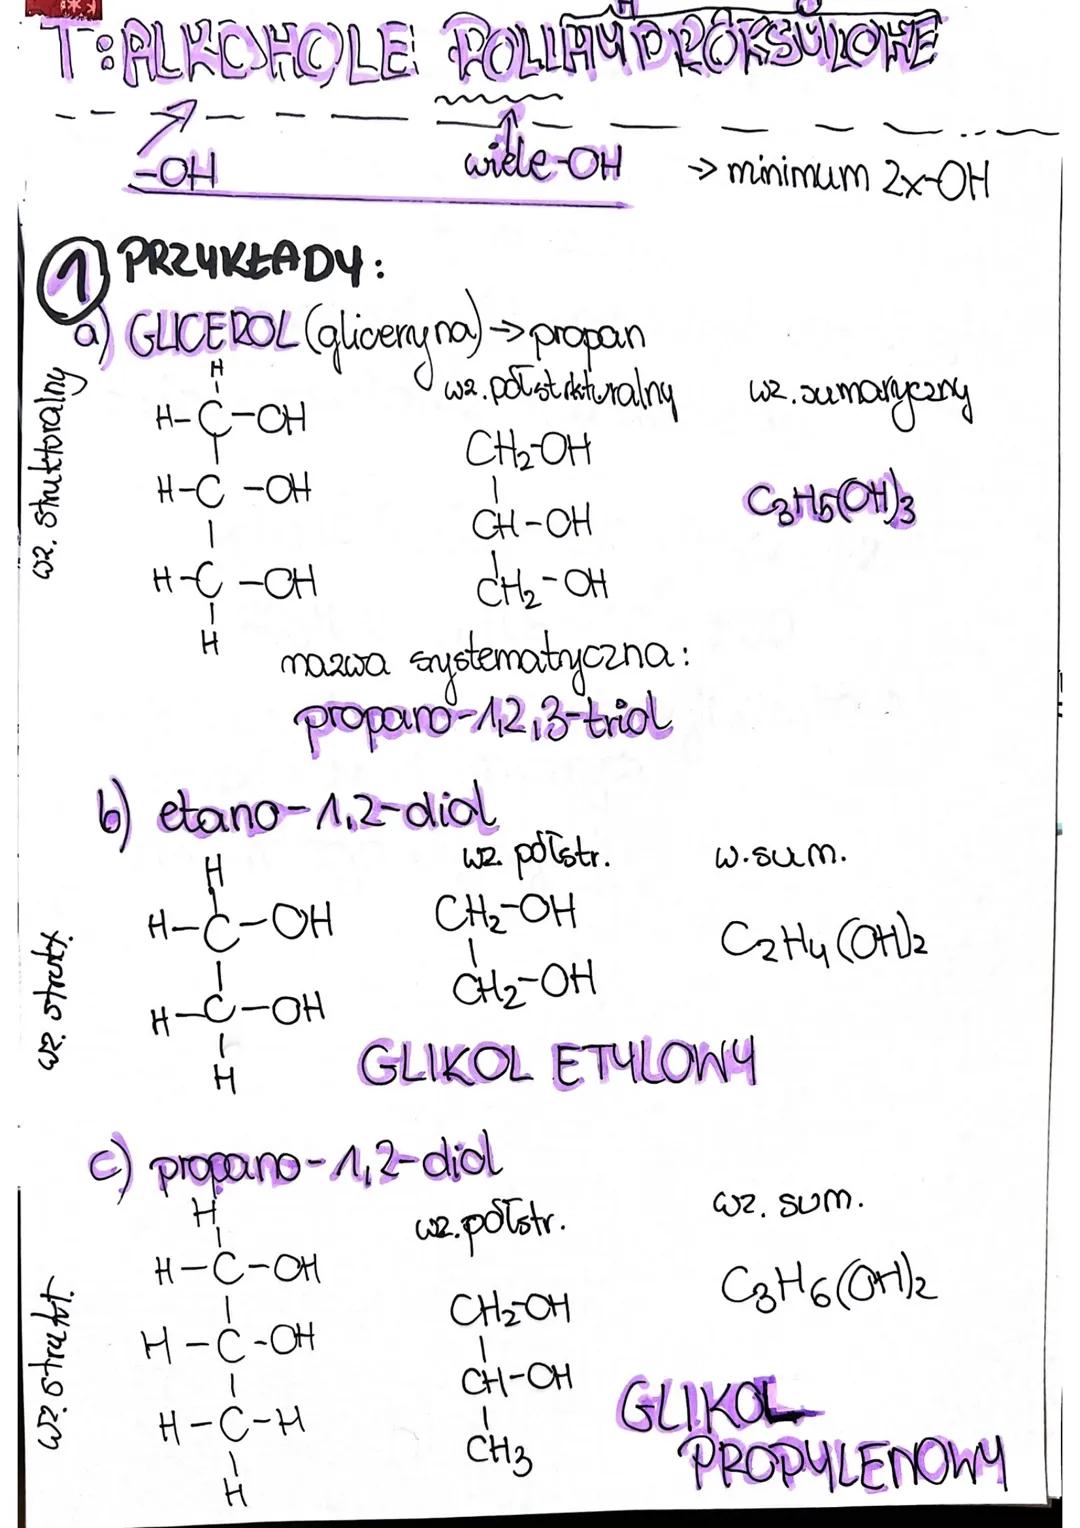 T: ALKOHOLE POLIHYDROKSYLOWE
-OH wiele-OH → minimum 2x-OH
1 PRZYKŁADY:
a) GLICEROL (gliceryna) → propan
wz. strukturalny
wz. półstrukturalny
wz. sumaryczny
H
H-C-OH
H-C-OH
H-C-OH
H
CH₂-OH
CH-OH
CH₂-OH
C₃H₅(OH)₃
nazwa systematyczna:
propano-1,2,3-triol
b) etano-1,2-diol
wz. półstr.
w.sum.
H
H-C-OH
H-C-OH
H
CH₂-OH
CH₂-OH
C₂H₄(OH)₂
GLIKOL ETYLOWY
c) propano-1,2-diol
wz. półstr.
wz. sum.
wz. strukt.
H
H-C-OH
H-C-OH
H-C-H
H
CH₂-OH
CH-OH
CH₃
C₃H₆(OH)₂
GLIKOL
PROPYLENOWY